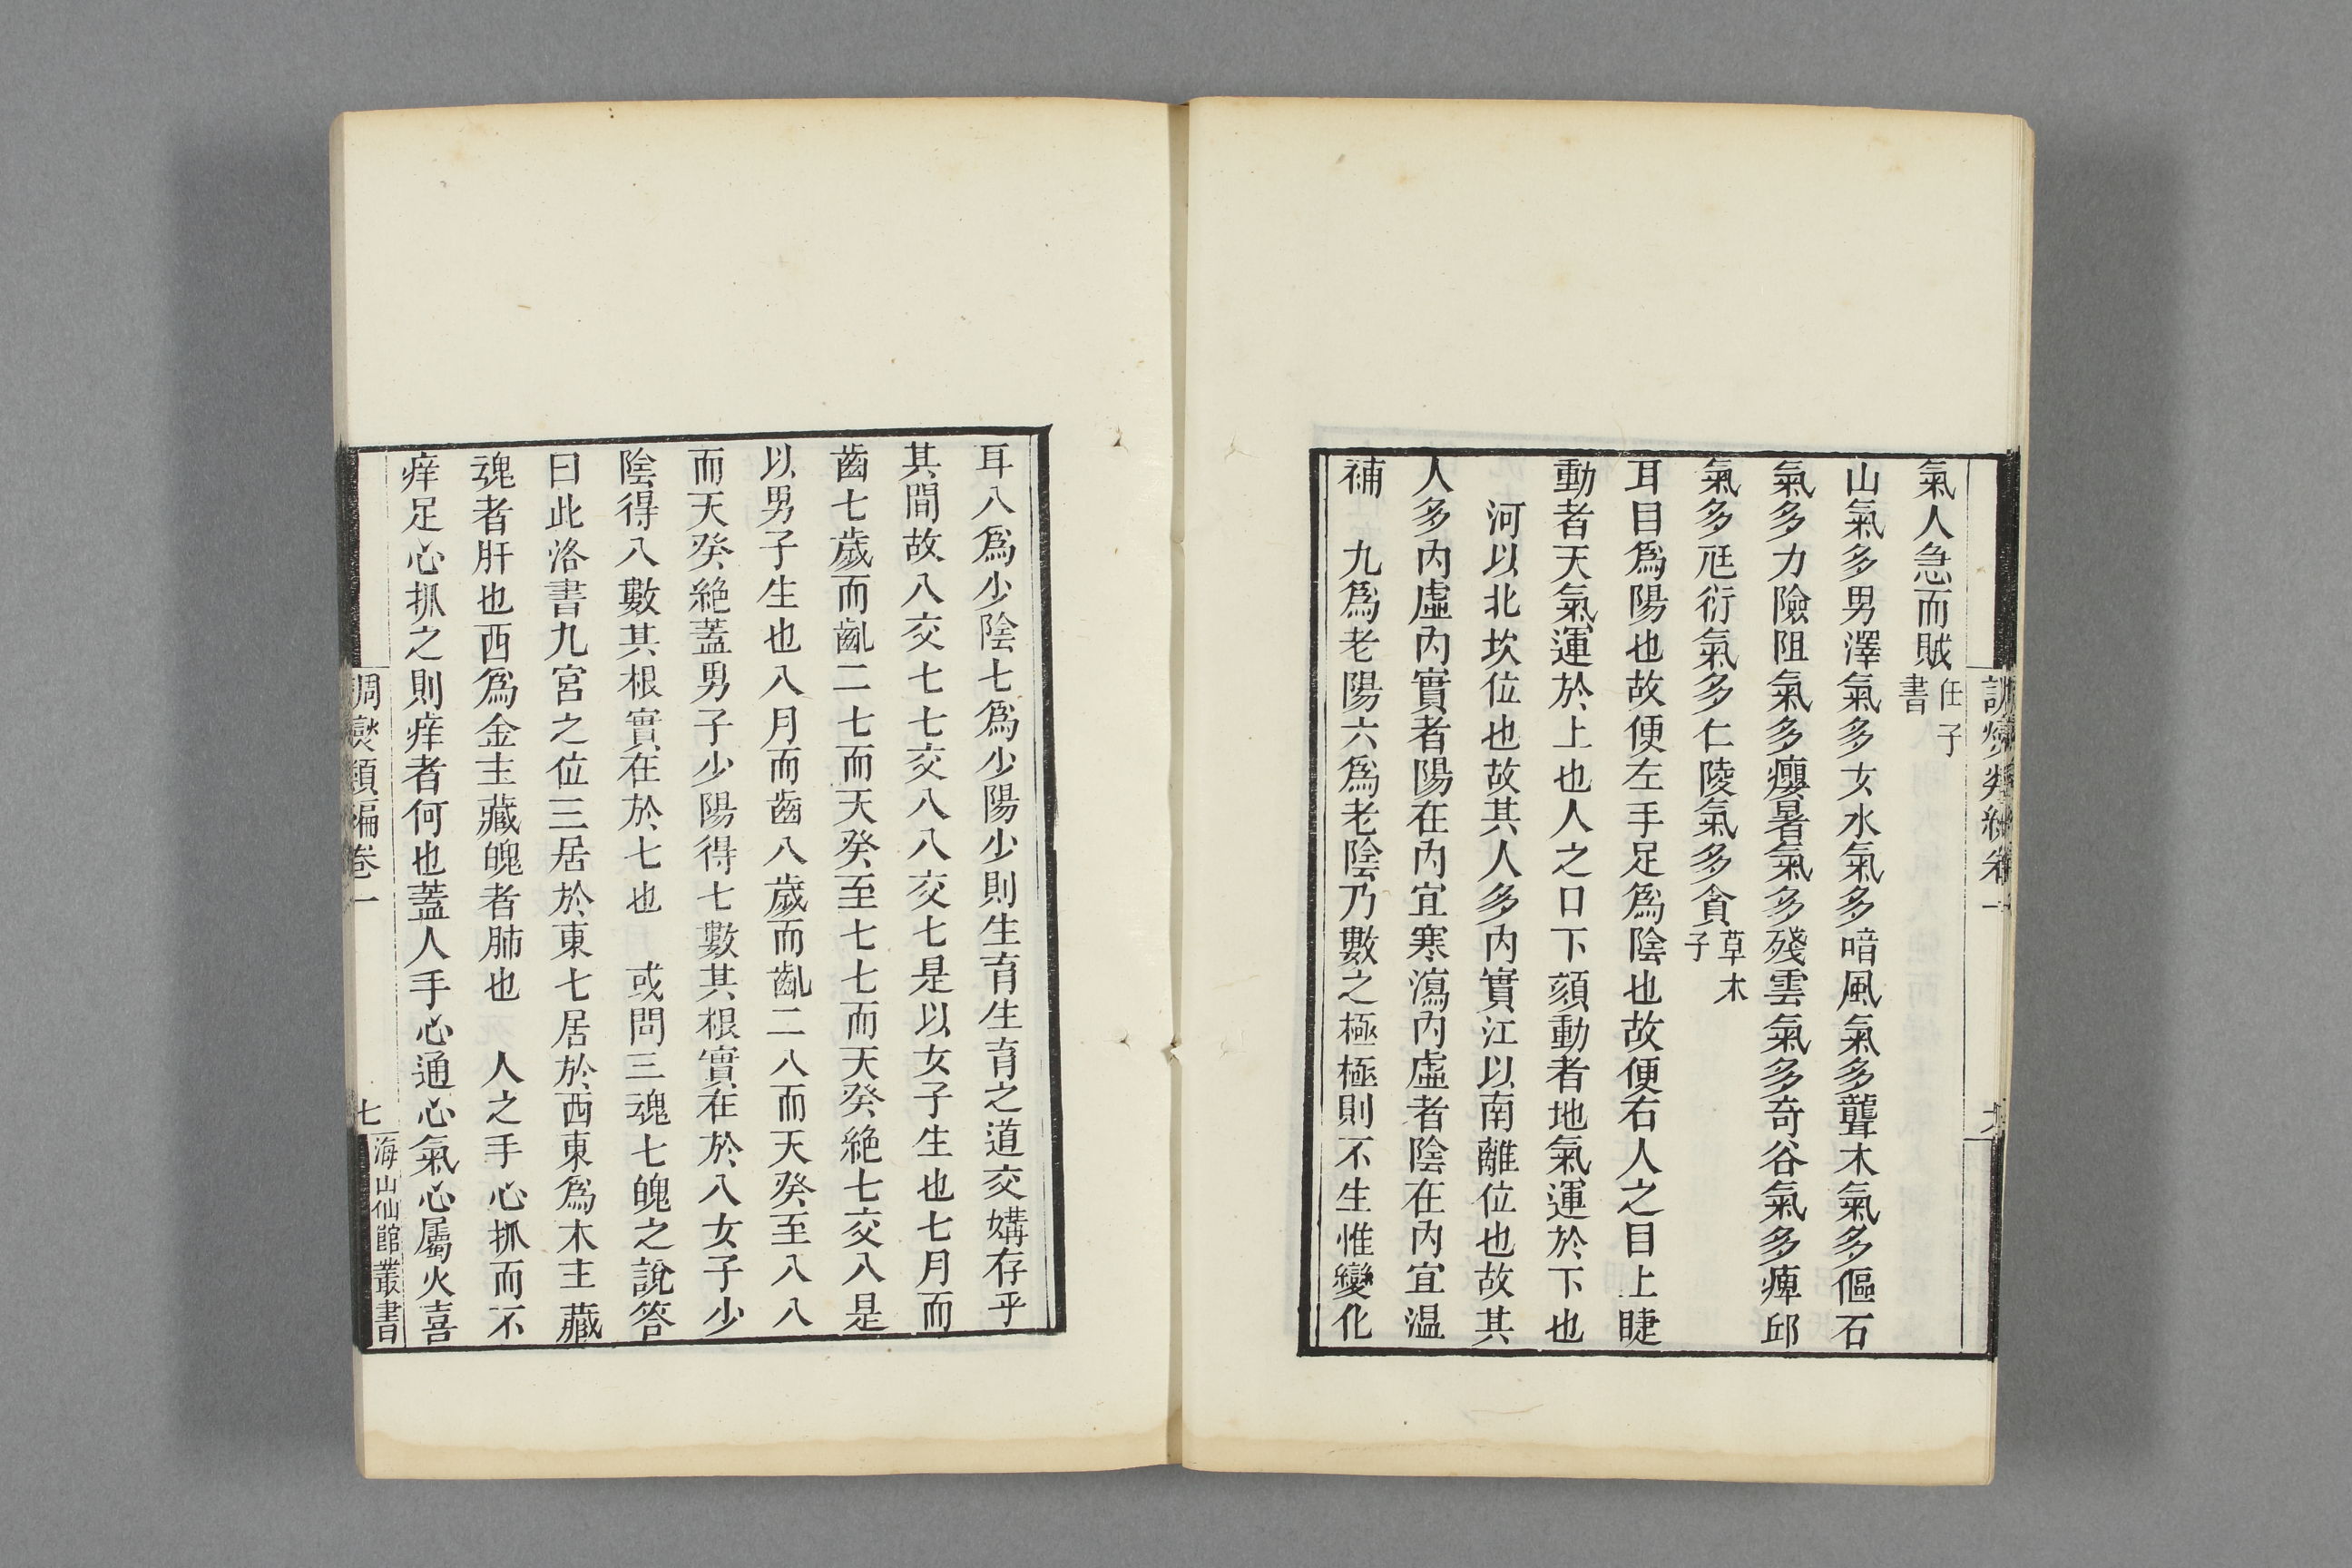 氣人急而賊任子書
山氣多男澤氣多女水氣多喑風氣多聾木氣多傴石
氣多力險阻氣多癭暑氣多殘雲氣多奇谷氣多痺邱
氣多尫衍氣多仁陵氣多貪草木子
耳目為陽也故便左手足為陰也故便右人之目上睫
動者天氣運於上也人之口下頦動者地氣運於下也
河以北坎位也故其人多內實江以南離位也故其
人多內虛內實者陽在內宜寒瀉內虛者陰在內宜温
補　九為老陽六為老陰乃數之極極則不生惟變化
耳八為少陰七為少陽少則生育生育之道交媾存乎
其間故八交七七交八八交七是以女子生也七月而
齒七歲而齓二七而天癸至七七而天癸絶七交八是
以男子生也八月而齒八歲而齓二八而天癸至八八
而天癸絶蓋男子少陽得七數其根實在於八女子少
陰得八數其根實在於七也　或問三魂七魄之說答
曰此洛書九宮之位三居於東七居於西東為木主藏
魂者肝也西為金主藏魄者肺也　人之手心抓而不
痒足心抓之則痒者何也蓋人手心通心氣心屬火喜
調燮類編卷一
七
海山仙館叢書